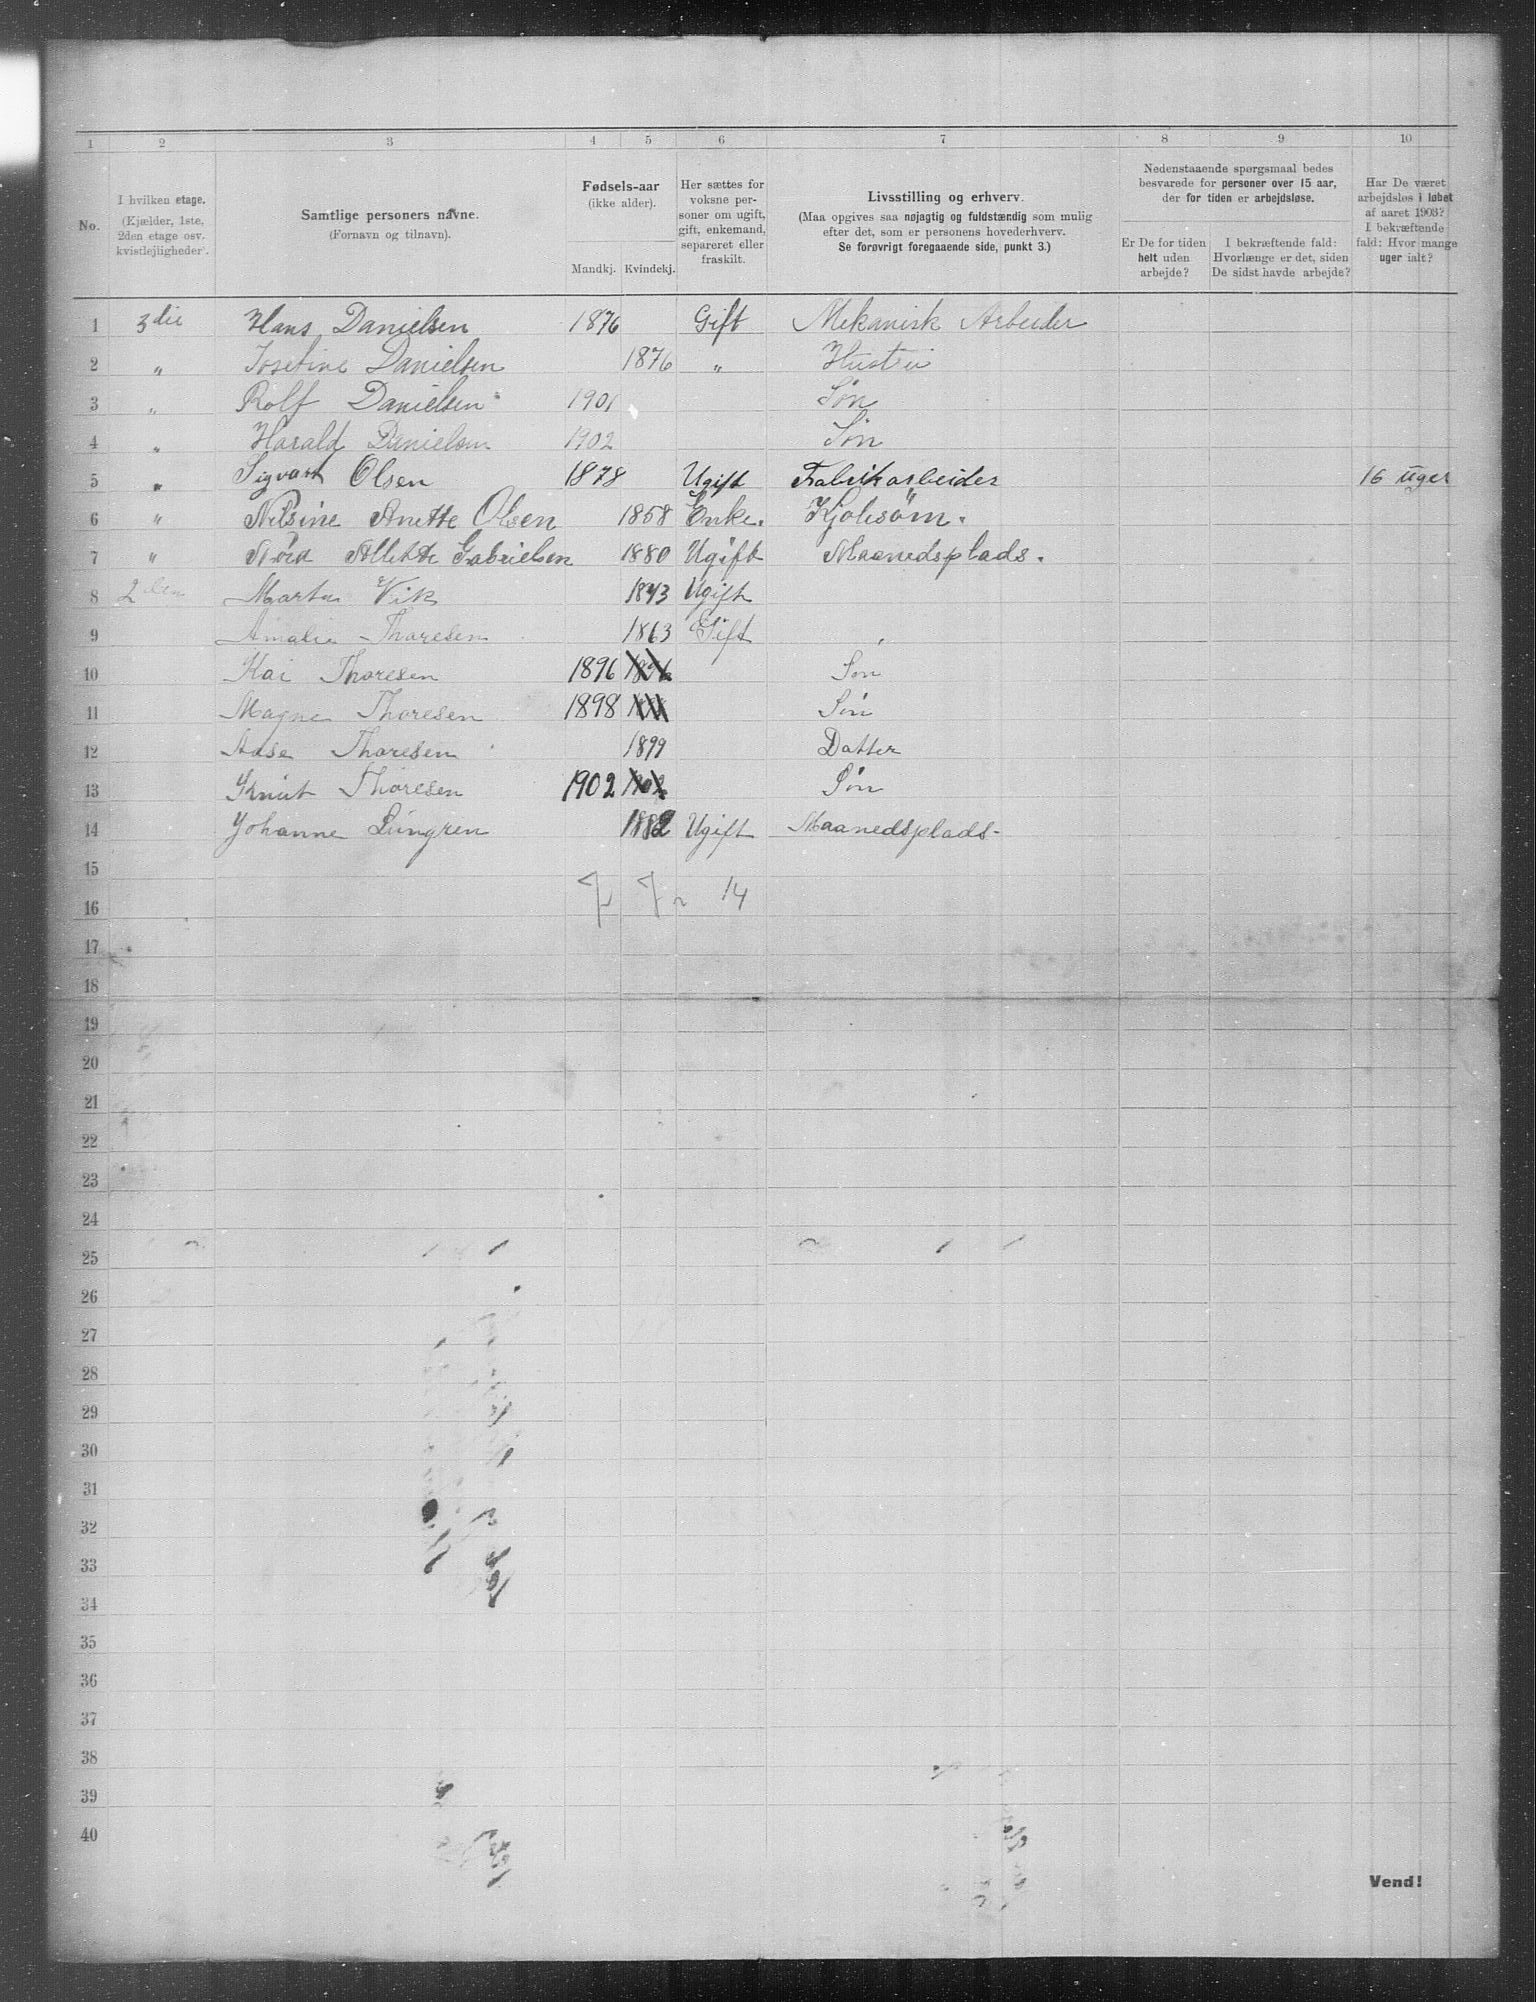 1 2 3 4 5 6 7 8 9 10
No.
I hvilken etage.
(Kjælder, 1ste,
2den etage osv.
kvistlejligheder).
Samtlige personers navne.
(Fornavn og tilnavn).
Fødsels-aar
(ikke alder).
Mandkj. Kvindekj.
Her sættes for
voksne per-
soner om ugift,
gift, enkemand,
separeret eller
fraskilt.
Livsstilling og erhverv.
(Maa opgives saa nøjagtig og fuldstændig som mulig
efter det, som er personens hovederhverv.
Se forøvrigt foregaaende side, punkt 3.)
Nedenstaaende spørgsmaal bedes
besvarede for personer over 15 aar,
der for tiden er arbejdsløse.
Er De for tiden
helt uden
arbejde?
I bekræftende fald:
Hvorlænge er det, siden
De sidst havde arbejde?
Har De været
arbejdsløs i løbet
af aaret 1903?
I bekræftende
fald: Hvor mange
uger ialt?
1 3die Hans Danielsen 1876 Gift Mekanisk Arbeider
2 " Josefine Danielsen 1876 " Hustru
3 " Rolf Danielsen 1901 Søn
4 " Harald Danielsen 1902 Søn
5 " Sigvart Olsen 1878 Ugift Fabrikarbeider 16 uger
6 " Nilsine Anette Olsen 1858 Enke. Kjolesøm.
7 " Alette Gabrielsen 1880 Ugift Maanedsplads.
8 2den Marta Vik 1843 Ugift
9 Amalie Thoresen 1863 Gift
10 Kai Thoresen 1896 1896 Søn
11 Magne Thoresen 1898 Søn
12 Aase Thoresen 1899 Datter
13 Knut Thoresen 1902 1902 Søn
14 Johanne Lungren 1882 Ugift Maanedsplads-
15
16 7 7 14
17
18
19
20
21
22
23
24
25
26
27
28
29
30
31
32
33
34
35
36
37
38
39
40
Vend!